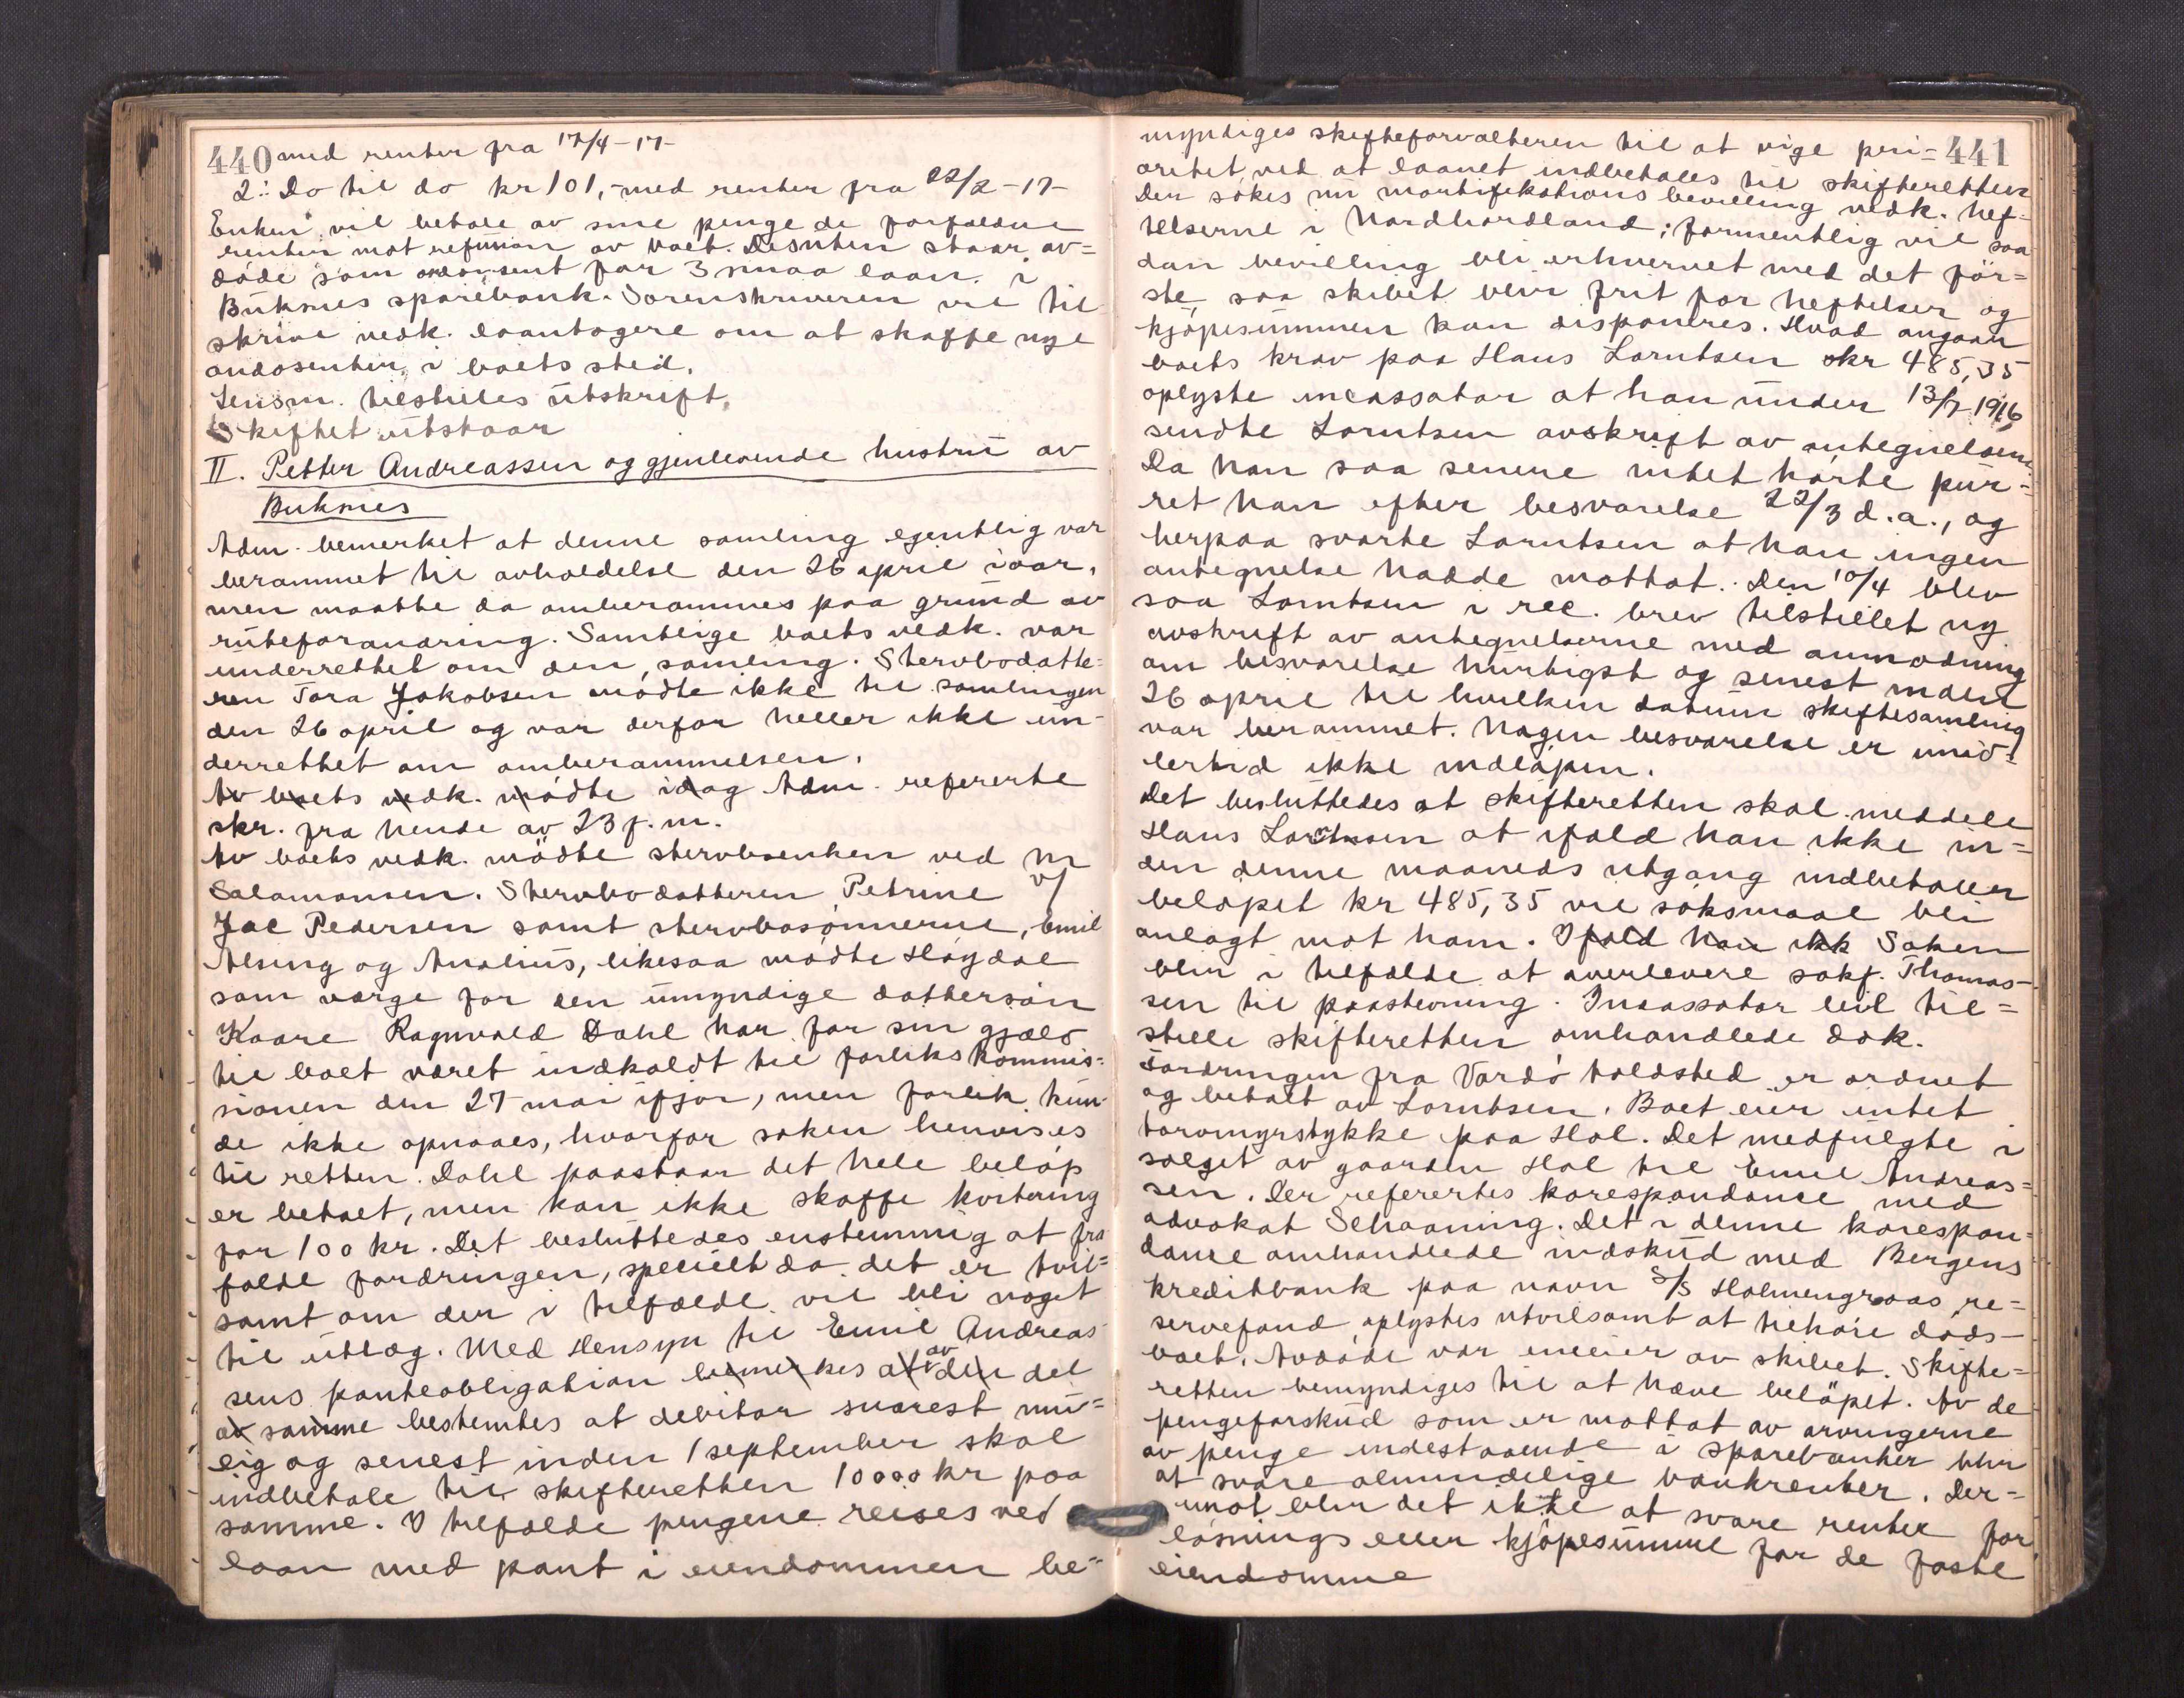 440 med renter fra 17/4-17-
2: Do til do kr 101,- med renter fra 22/2-17-
Enken vil betale av sine penge de forfaldne
renter mot refusion av boet. Desuten staar av=
döde som endossent for 3 smaa laan i
Buksnes sparebank. Sorenskriveren vil til
skrive vedk. laantagere om at skaffe nye
endosenter i boets sted.
Lensm. tilstilles utskrift.
Skiftet utstaar
II. Petter Andreassen og gjenlevende hustru av
Buksnes
Adm. bemerket at denne samling egentlig var
berammet til avholdelse den 26 april iaar,
men maatte da omberammes paa grund av
ruteforandring. Samtlige boets vedk. var
underrettet om den samling. Stervbodatte=
ren Tora Jakobsen mödte ikke til samlingen
den 26 april og var derfor heller ikke un-
derrettet om omberammelsen.
Av boets vedk. mödte idag Adm. refererte
skr. fra hende av 23 f.m.
Av boets vedk. mödte stervboenken ved M
Salamonsen. Stervbodatteren Petrine v/
Jac Pedersen samt stervbosönnerne, Emil
Alsing og Analius, likesaa mödte Högdal
som verge for den umyndige dattersön
Kaare Ragnvald Dahl har for sin gjæld
til boet været indkaldt til forlikskommis=
sionen den 27 mai ifjor, men forlik kun-
de ikke opnaaes, hvorfor saken henvises
til retten. Dahl paastaar det hele belöp
er betalt, men kan ikke skaffe kvitering
for 100 kr. Det besluttedes enstemmig at fra
falde fordringen, specielt da det er tvil=
samt om der i tilfælde vil bli noget
til utlæg. Med Hensyn til Emil Andreas
sens panteobligation bemerkes at av den del
av samme bestemtes at debitor snarest mu=
lig og senest inden 1 september skal
indbetale til skifteretten 10000 kr paa
samme. I tilfælde pengene reises ved
laan med pant i eiendommen be=
441
myndiges skifteforvalteren til at vige pri=
oritet ved at laanet indbetales til skifteretten
Der sökes nu mortifikationsbevilling vedk. hef-
telserne i Nordhordland; formentlig vil saa
dan bevilling bli erhvervet med det för=
ste saa skibet blir frit for heftelser og
kjöpesummen kan disponeres. Hvad angaar
boets krav paa Hans Lorntsen kr 485,35
oplyste incassator at han under 13/7 1916
sendte Lorntsen avskrift av antegnelserne.
Da han saa senere intet hörte pur=
ret han efter besvarelse 22/3 d.a., og
herpaa svarte Lorntsen at han ingen
antegnelse hadde mottat. Den 10/4 blev
saa Lorntsen i rec. brev tilstillet ny
avskrift av antegnelserne med anmodning
om besvarelse hurtigst og senest inden
26 april til hvilken datum skiftesamling
var berammet. Nogen besvarelse er imid=
lertid ikke indlöpen.
Det besluttedes at skifteretten skal meddele
Hans Lorntsen at ifald han ikke in=
den denne maaneds utgang indbetaler
belöpet kr 485,35 vil söksmaal bli
anlagt mot ham. Ifald han ikk Saken
blir i tilfælde at overlevere sakf. Thomas-
sen til paastevning. Incassator vil til=
stille skifteretten omhandlede dok.
Fordringen fra Vardö toldsted er ordnet
og betalt av Lorntsen. Boet eier intet
torvmyrstykke paa Hol. Det medfulgte i
salget av gaarden Hol til Emil Andreas=
sen. Der referertes korespondance med
advokat Schaaning. Det i denne korespon=
dance omhandlede indskud med Bergens
kreditbank paa navn S/S Holmengraas re=
servefond oplystes utvilsomt at tilhöre döds-
boet. Avdöde var eneeier av skibet. Skifte=
retten bemyndiges til at hæve belöpet. Av de
pengeforskud som er mottat av arvingerne
av penge indestaaende i sparebanker blir
at svare almindelige bankrenter. Der=
imot blir det ikke at svare renter for
lösnings eller kjöpesumme for de faste
eiendomme